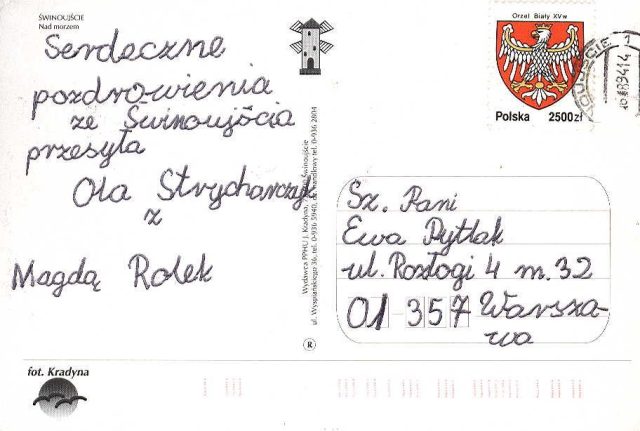 ŚWINOUJŚCIE
Nad morzem
Serdeczne
pozdrowienia
ze Świnoujścia
przesyła
Ola Strycharczyk
z
Magdą Rolek
fot. Kradyna
Wydawca PPHU J. Kradyna, Świnoujście
ul. Wyspiańskiego 36, tel. 0-936 5940, handlowy tel. 0-936 2804
R
Orzeł Biały XVw
Polska 2500zł
Sz. Pani
Ewa Pytlak
ul. Rozłogi 4 m. 32
01-357 Warsza-
wa